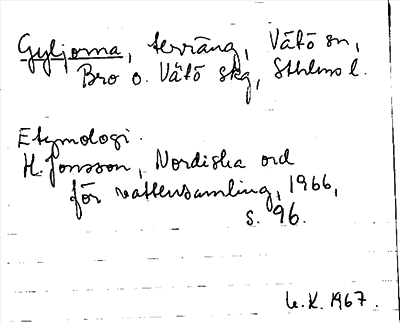 Gyljorna, terräng, Vätö sn,
Bro o. Vätö skg, Sthlms l.
Etymologi.
H. Jonsson, Nordiska ord
för vattensamling, 1966,
s. 96.
U.K. 1967.